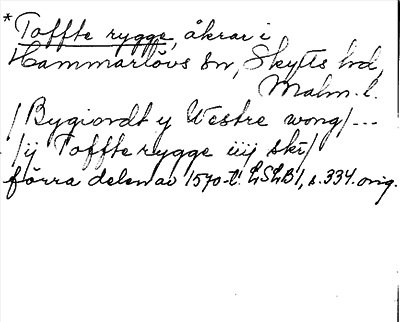 *Toffte rygge, åkrar i
Hammarlövs sn, Skytts hd,
Malm. l.
/Bygiordt y Westre wong/---
/ij Toffte rygge iiij skr/
förra delen av 1570-t. LSLB1, s. 334. orig.